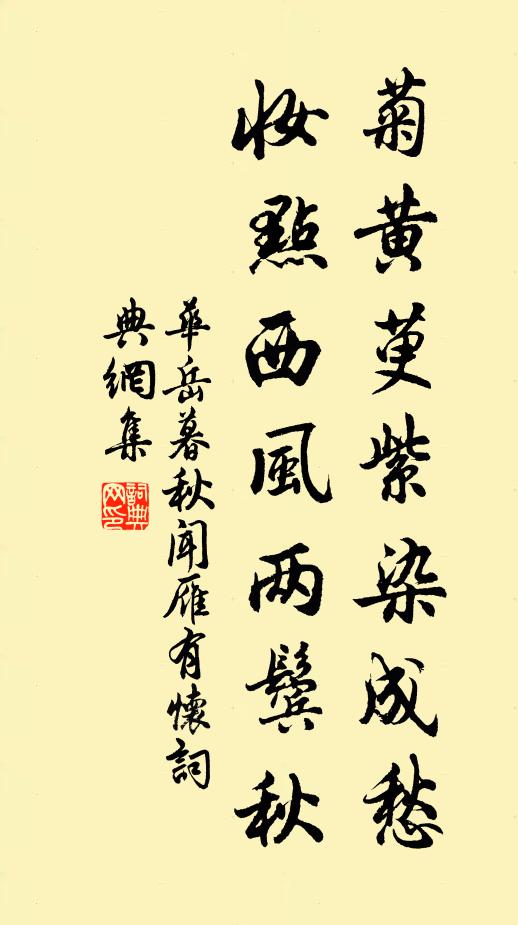 菊黄萸紫染成愁
妝點西風兩鬢秋
華岳暮秋聞雁有懷詞
典網集
詞典
网印